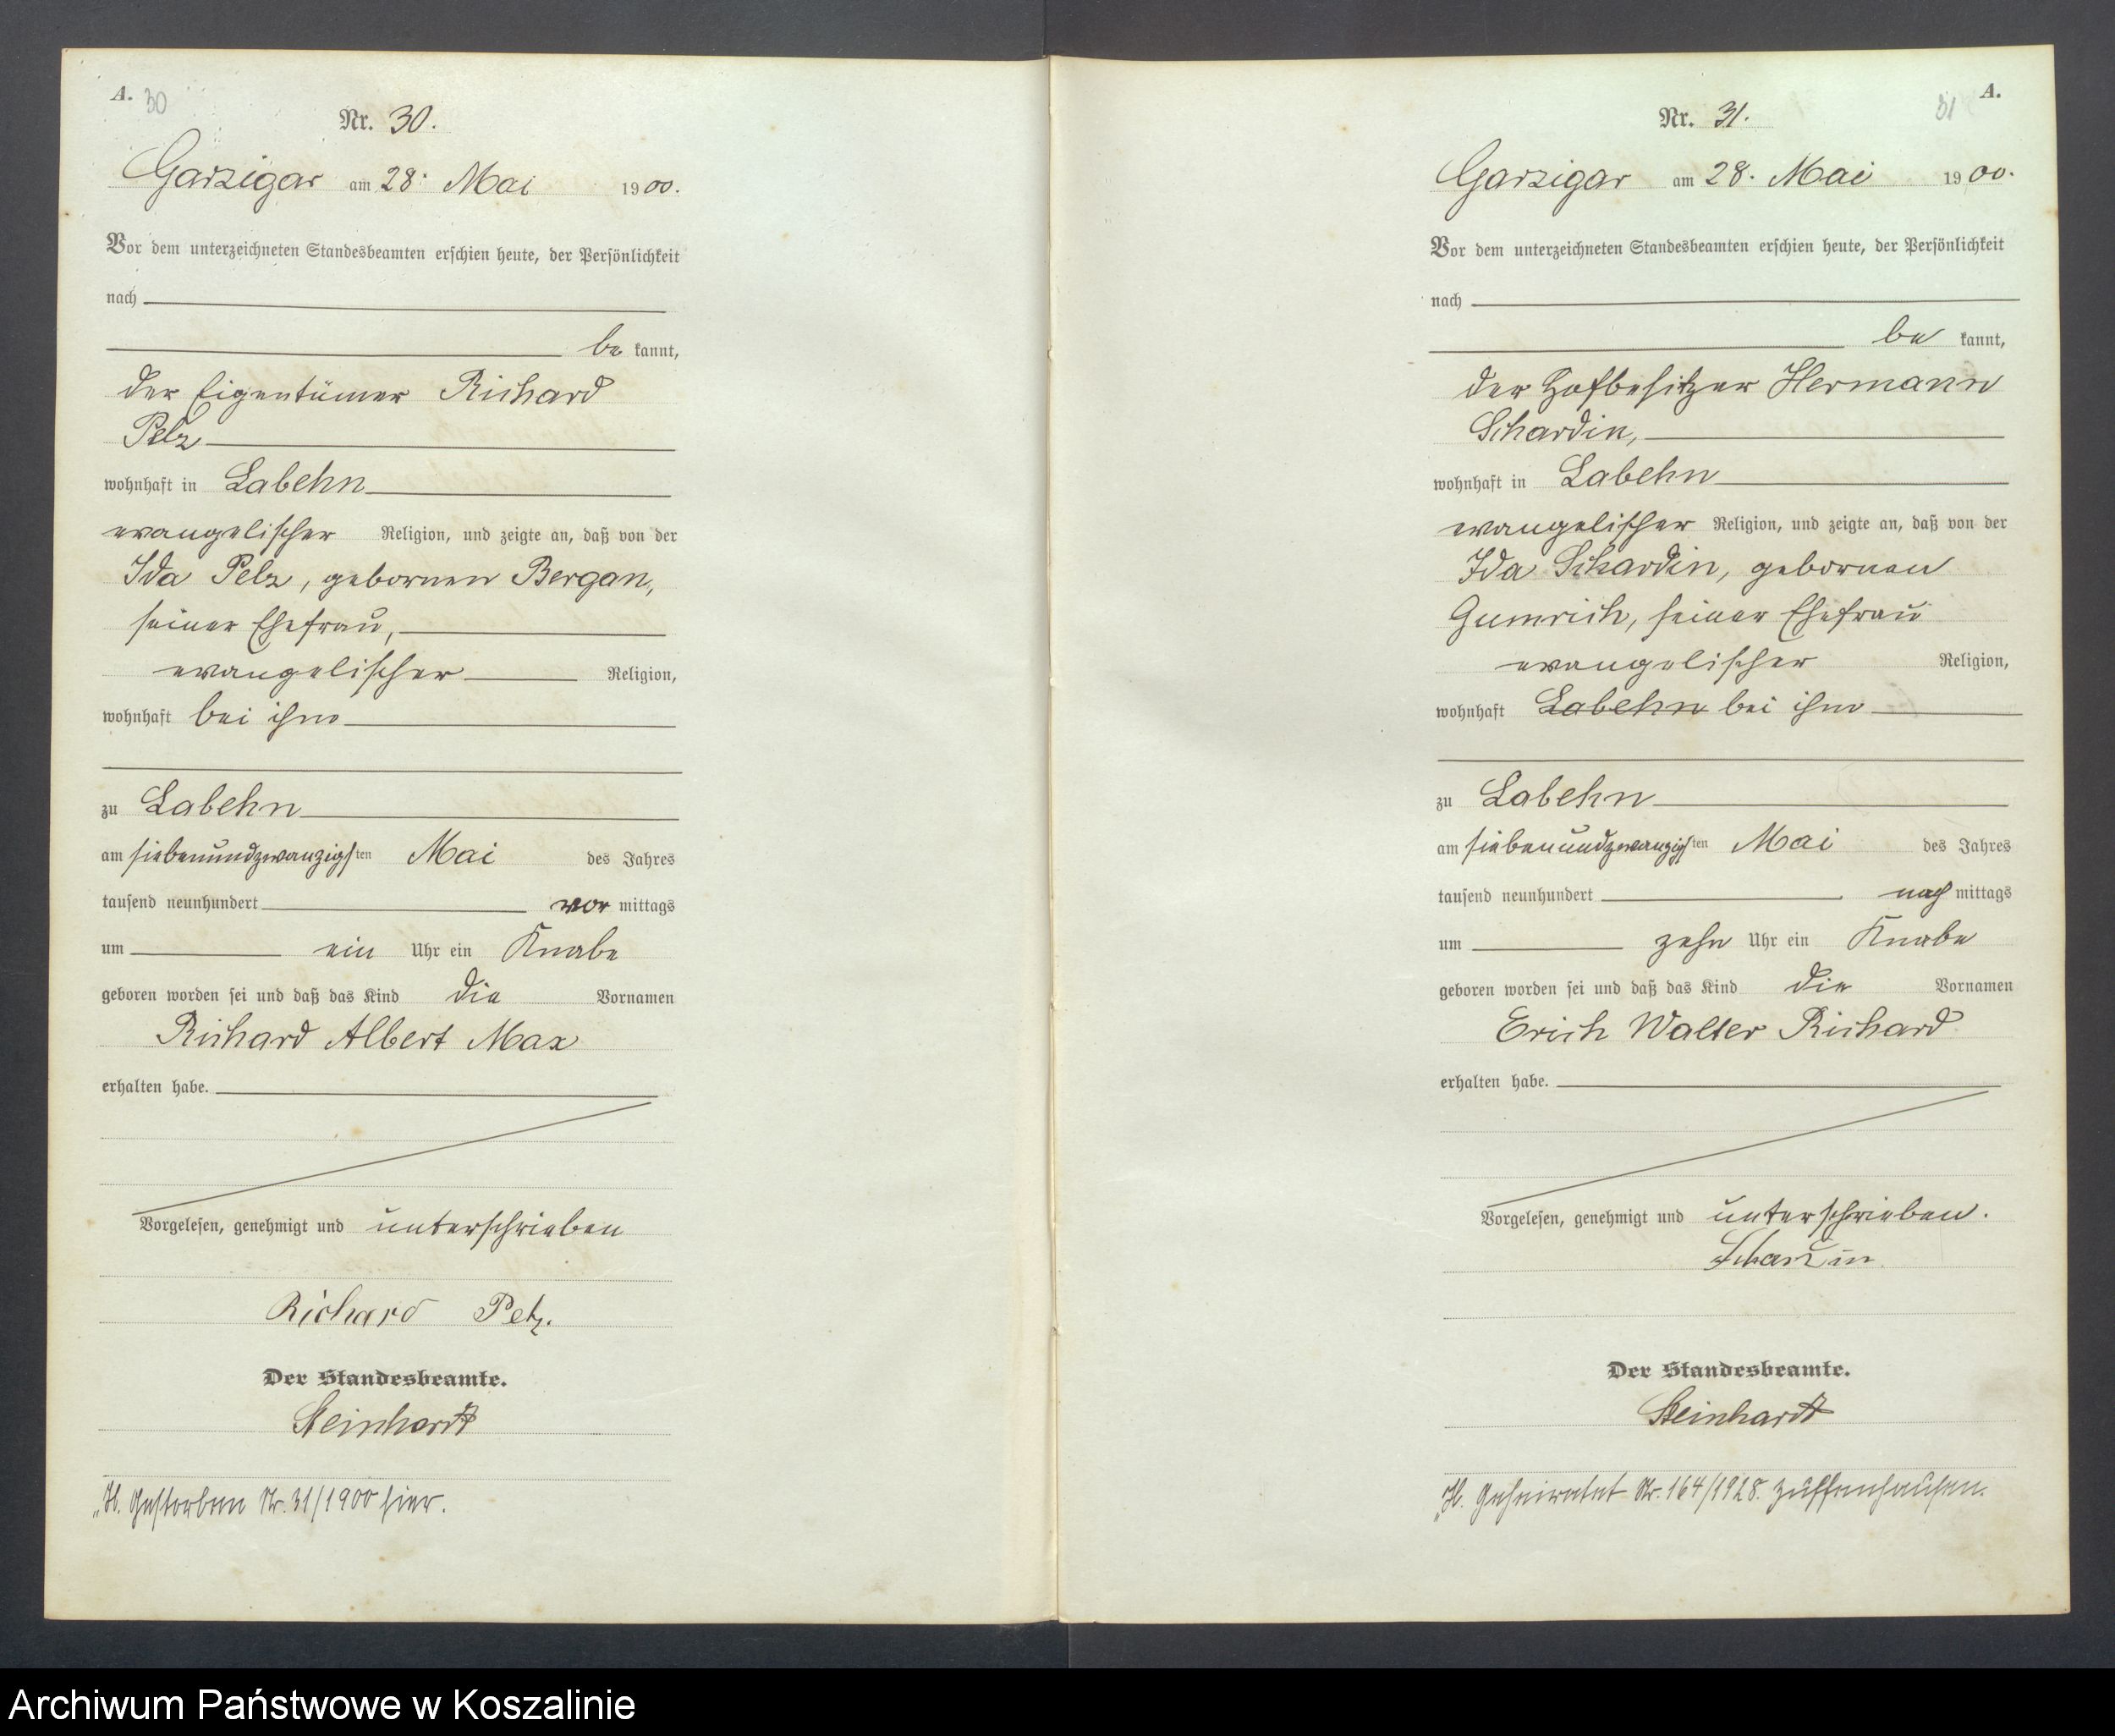 A. 30
Nr. 30.
Garzigar am 28. Mai 1900.
Vor dem unterzeichneten Standesbeamten erschien heute, der Persönlichkeit
nach
be kannt,
der Eigentümer Richard
Pelz
wohnhaft in Labehn
evangelischer Religion, und zeigte an, daß von der
Ida Pelz, gebornen Bergan,
seiner Ehefrau,
evangelischer Religion,
wohnhaft bei ihm
zu Labehn
am siebenundzwanzigsten Mai des Jahres
tausend neunhundert vor mittags
um ein Uhr ein Knabe
geboren worden sei und daß das Kind die Vornamen
Richard Albert Max
erhalten habe.
Vorgelesen, genehmigt und unterschrieben
Richard Pelz.
Der Standesbeamte.
Steinhardt
H. Gestorben Nr. 31/1900 hier.
A.
31
Nr. 31.
Garzigar am 28. Mai 1900.
Vor dem unterzeichneten Standesbeamten erschien heute, der Persönlichkeit
nach
be kannt,
der Hofbesitzer Hermann
Schardin,
wohnhaft in Labehn
evangelischer Religion, und zeigte an, daß von der
Ida Schardin, gebornen
Gumrich, seiner Ehefrau
evangelischer Religion,
wohnhaft Labehn bei ihm
zu Labehn
am siebenundzwanzigsten Mai des Jahres
tausend neunhundert nach mittags
um zehn Uhr ein Knabe
geboren worden sei und daß das Kind die Vornamen
Erich Walter Richard
erhalten habe.
Vorgelesen, genehmigt und unterschrieben.
Schardin
Der Standesbeamte.
Steinhardt
H. Geheiratet Nr. 164/1928. Zuffenhausen.
Archiwum Państwowe w Koszalinie